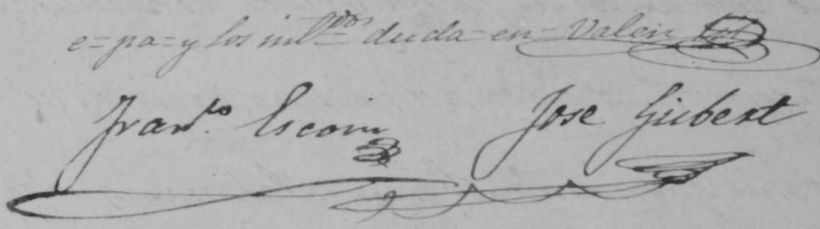 e=pa=y los inl.dos duda=en=Valen
Fran.co Escoin Jose Gisbert